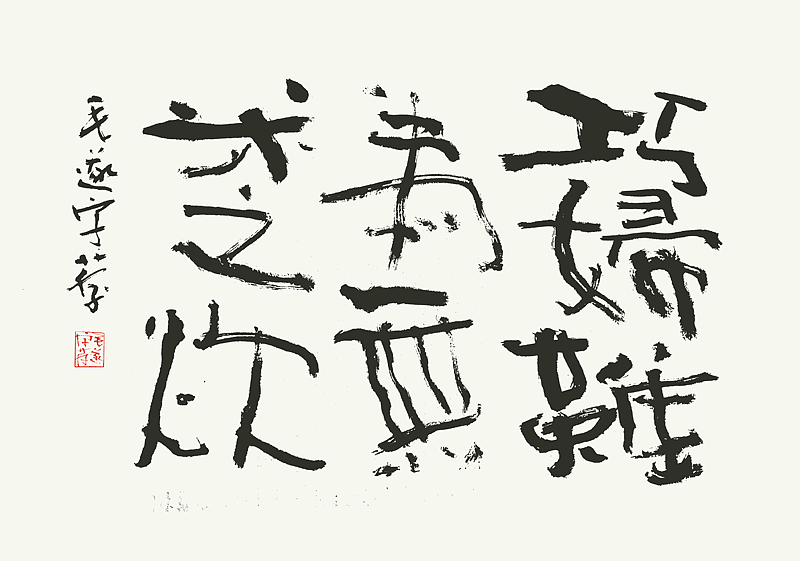 巧婦難
為無
米之炊
毛遂